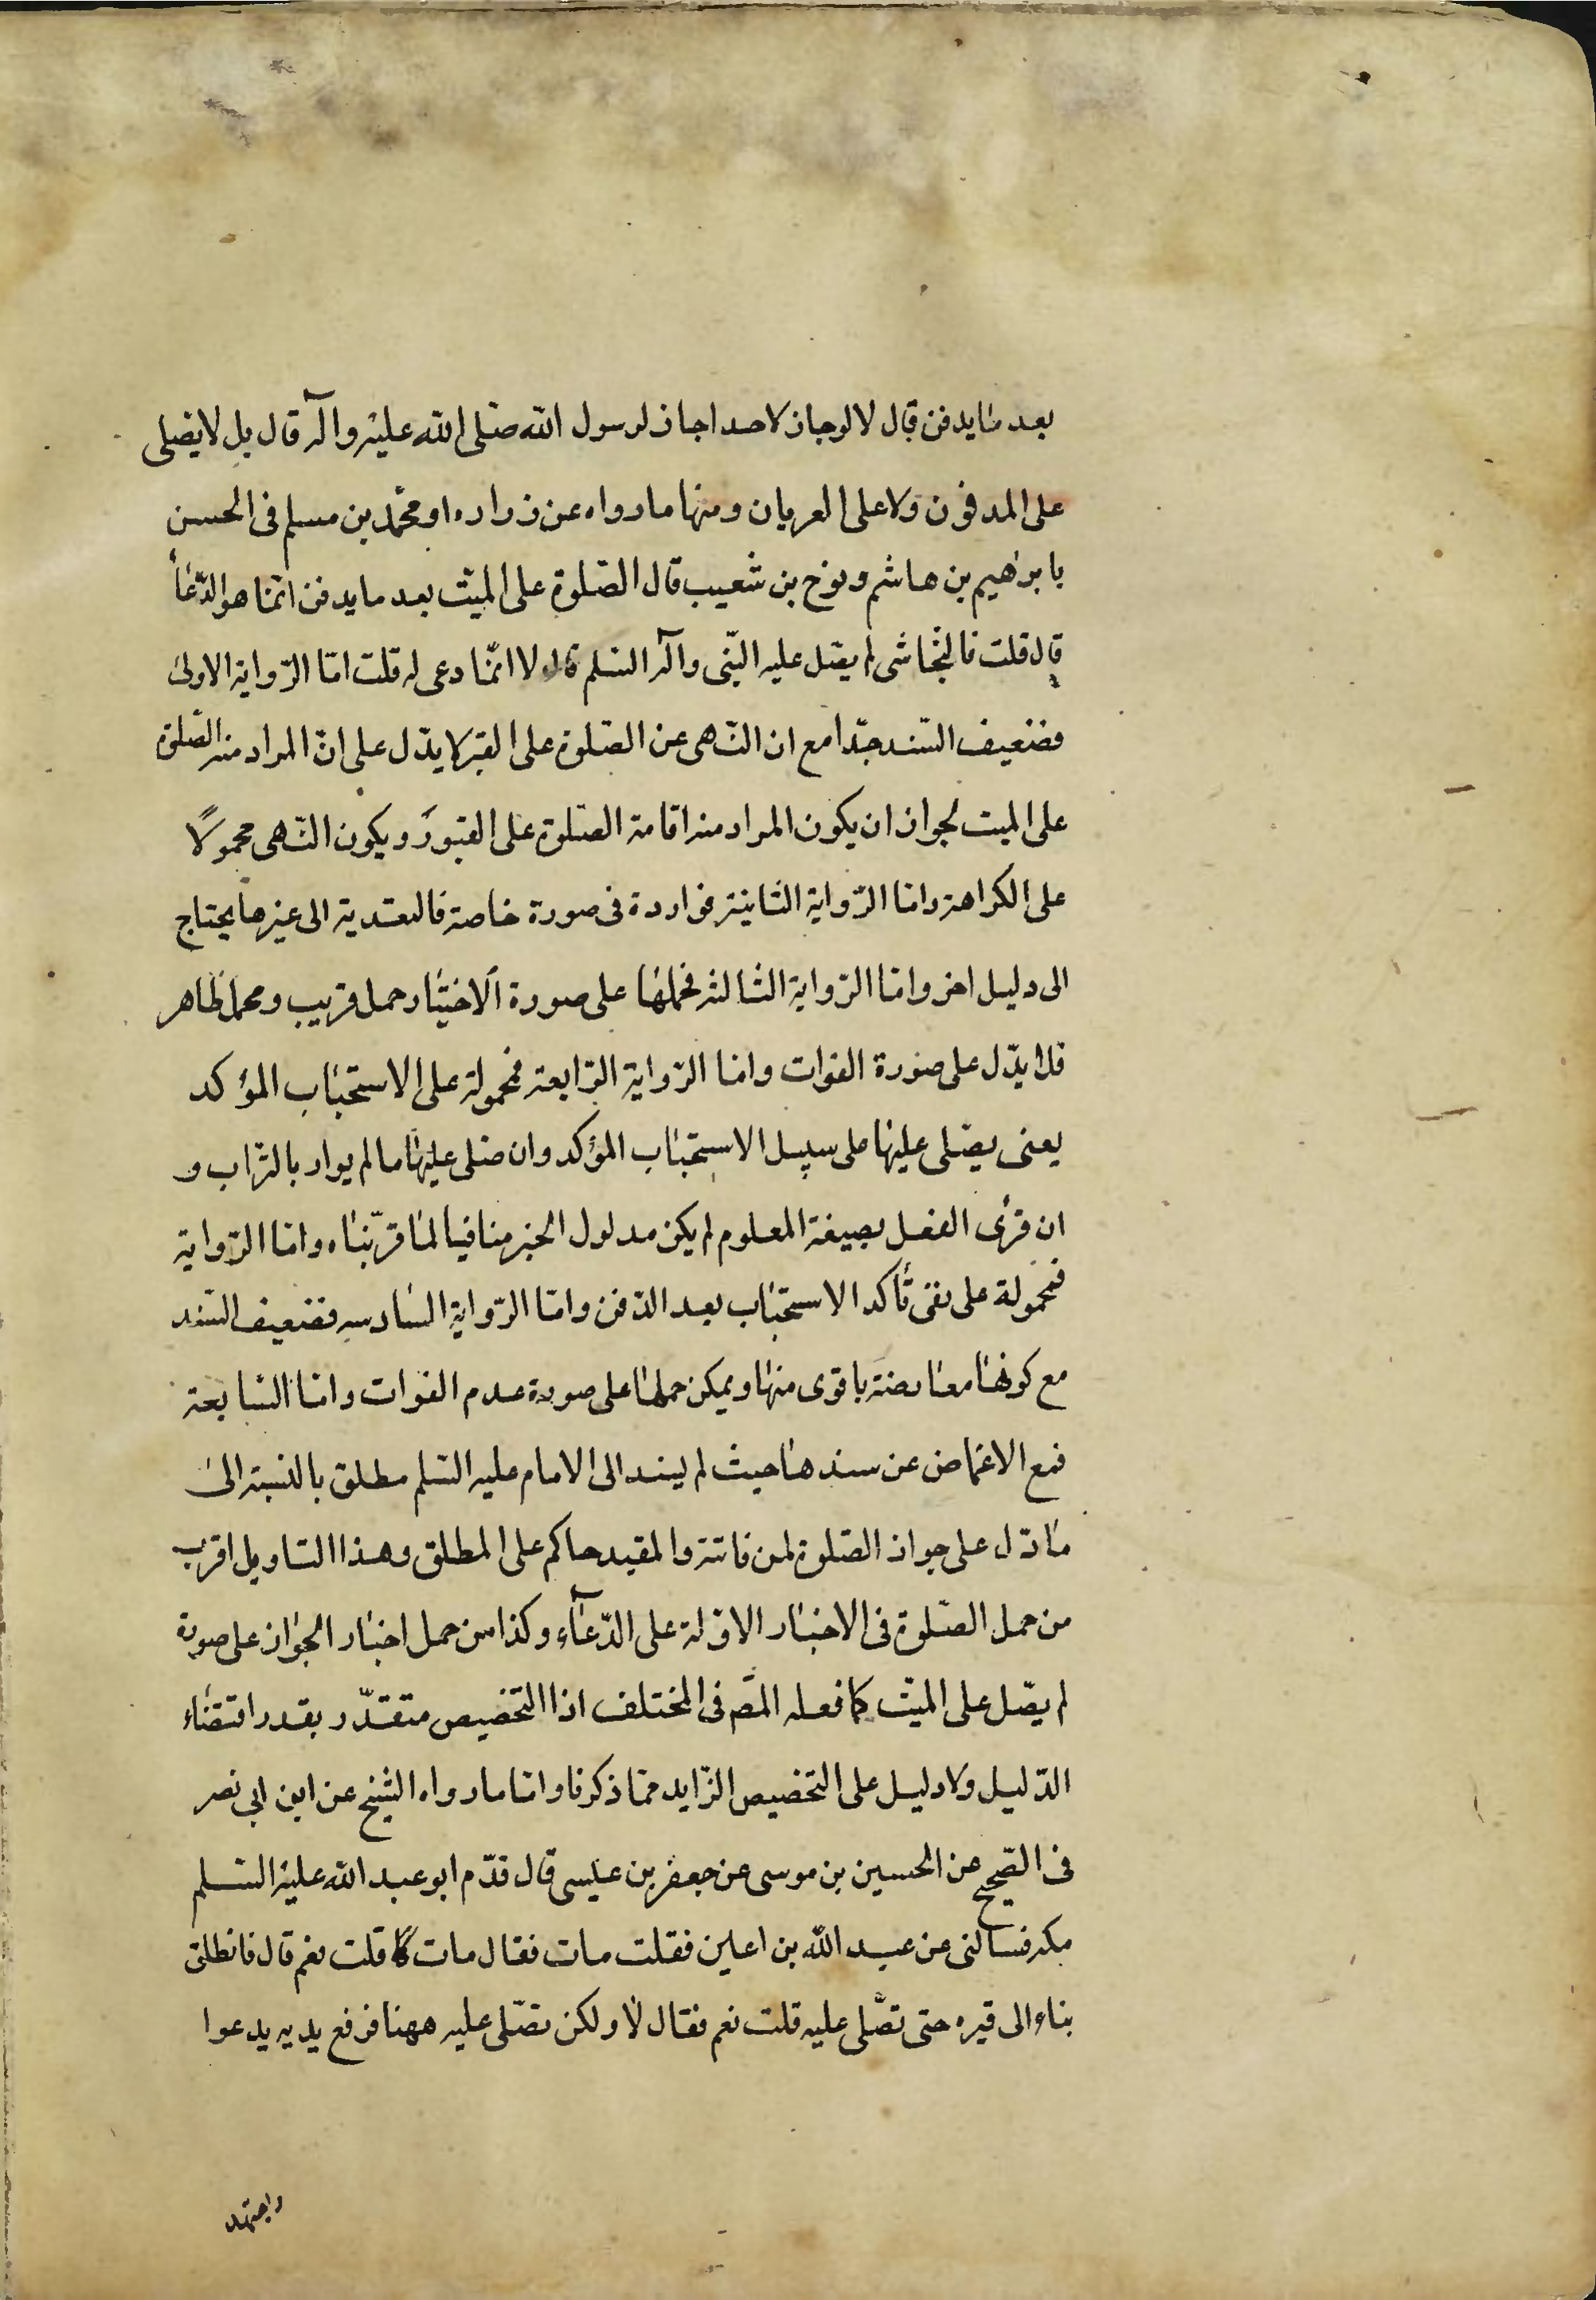 بعد ما يدفن قال لا لو جاز لاحد اجاز لرسول الله صلى الله عليه وآله قال بل لا يصلى
على المدفون ولا على العريان ومنها ما رواه عن زراره او محمّد بن مسلم فى الحسن
بابرٰهيم بن هاشم ونوح بن شعيب قال الصّلوة على الميّت بعد ما يدفن انّما هو الدّعاء
قال قلت فالنّجاشى لم يصّل عليه النّبى وآله السّلم قال لا انّما دعى له قلت امّا الرّواية الاولى
فضعيف السّند جدّا مع ان النّهى عن الصّلوة على القبر لا يدّل على انّ المراد منه الصّلوة
على الميت لجواز ان يكون المراد منه اقامة الصّلوة على القبور ويكون النّهى محمولًا
على الكراهة وامّا الرّواية الثانية فواردة فى صورة خاصة فالتعدية الى غيرها يحتاج
الى دليل اخر وامّا الرّواية الثالثه فحملها على صورة الاختيار حمل قريب ومحمل ظاهر
فلا يدّل على صورة الفوات وامّا الرّواية الرّابعة فمحمولة على الاستحباب المؤكد
يعنى يصّلى عليها على سبيل الاستحباب المؤكد وان صلى عليها ما لم يوار بالتراب و
ان قرأى الفعل بصيغة المعلوم لم يكن مدلول الخبر منافيا لما قرّبناه وامّا الرّواية
فمحمولة على نفى تأكد الاستحباب بعد الدّفن وامّا الرّواية السّادسه فضعيف السّند
مع كونها معارضة باقوى منها ويمكن حملها على صورة عدم الفوات وامّا السّابعة
فمع الاغماض عن سندها حيث لم يسند الى الامام عليه السّلم مطلق بالنسبة الى
ما دّل على جواز الصّلوة لمن فاتته والمقيد حاكم على المطلق وهذا التاويل اقرب
من حمل الصّلوة فى الاخبار الاوّلة على الدّعآء وكذا من حمل اخبار الجواز على صورة
لم يصّل على الميّت كما فعله المصّ فى المختلف اذا التخصيص متقدّر بقدر اقتضاء
الدّليل ولا دليل على التخصيص الزّايد ممّا ذكرنا وامّا ما رواه الشّيخ عن ابن ابى نصر
فى الصّحيح عن الحسين بن موسى عن جعفر بن عيسى قال قدّم ابو عبد الله عليه السّلم
مكه فسالنى عن عبد الله بن اعلين فقلت مات فقال مات قلت نعم قال فانطلق
بناء الى قبره حتى نصّلى عليه قلت نعم فقال لا ولكن نصّلى عليه ههنا فرفع يديه يدعوا
واجتهد